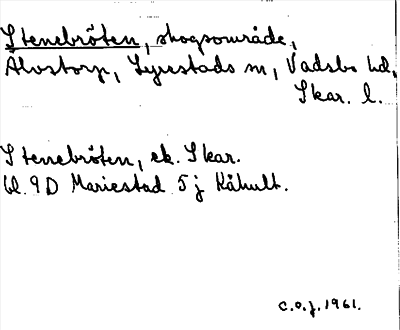 Stenebröten, skogsområde,
Älvstorp, Lyrestads sn, Vadsbo hd,
Skar. l.
Stenebröten, ek. Skar.
bl. 9D Mariestad 5j Kåhult.
C.O.J. 1961.